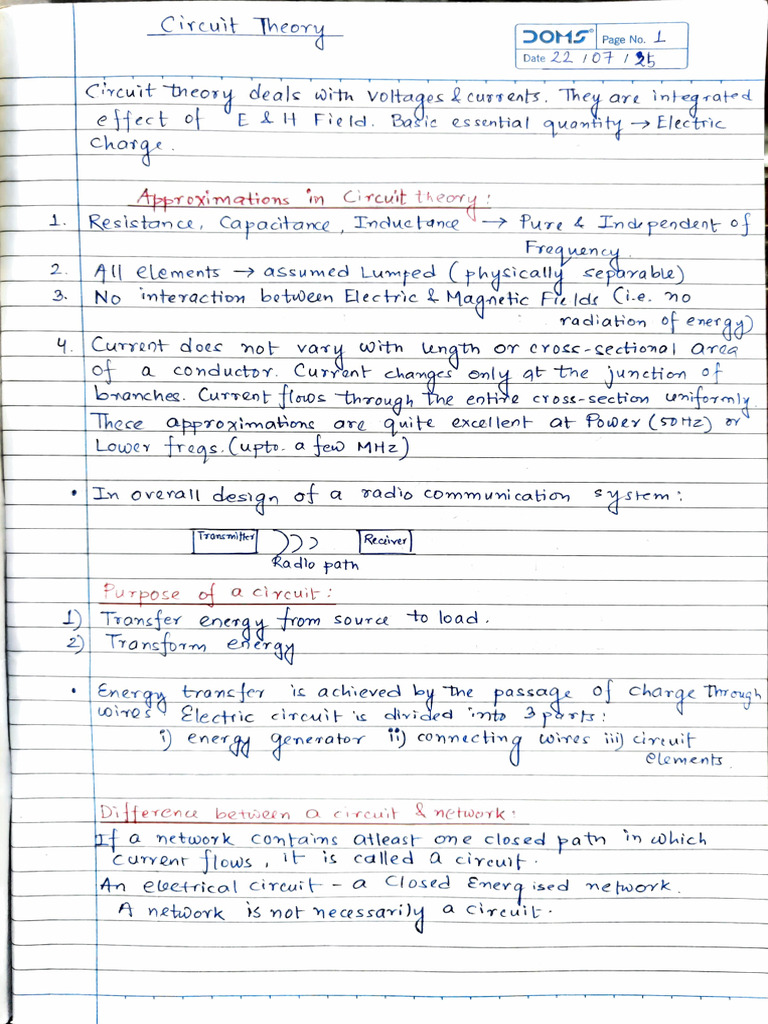 Circuit Theory
DOMS Page No. 1
Date 22 / 07 / 25
Circuit theory deals with voltages & currents. They are integrated
effect of E & H Field. Basic essential quantity → Electric
Charge.
Approximations in Circuit theory:
1. Resistance, Capacitance, Inductance → Pure & Independent of
Frequency.
2. All elements → assumed Lumped (physically separable)
3. No interaction between Electric & Magnetic Fields (i.e. no
radiation of energy)
4. Current does not vary with length or cross-sectional area
of a conductor. Current changes only at the junction of
branches. Current flows through the entire cross-section uniformly.
These approximations are quite excellent at Power (50Hz) or
Lower freqs. (upto a few MHz)
• In overall design of a radio communication system:
Transmitter Receiver
Radio path
Purpose of a circuit:
1) Transfer energy from source to load.
2) Transform energy
• Energy transfer is achieved by the passage of charge through
wires. Electric circuit is divided into 3 parts:
i) energy generator ii) connecting wires iii) circuit
elements.
Difference between a circuit & network:
If a network contains atleast one closed path in which
current flows, it is called a circuit.
An electrical circuit - a Closed Energised network.
A network is not necessarily a circuit.